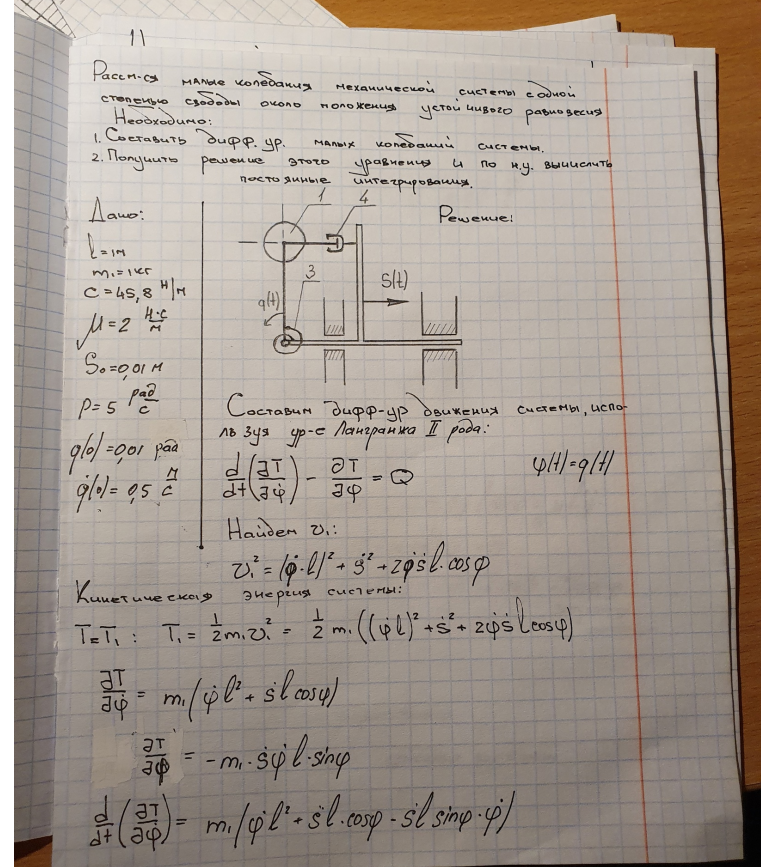 11
Рассм-ся малые колебания механической системы с одной
степенью свободы около положения устойчивого равновесия
Необходимо:
1. Составить дифф. ур. малых колебаний системы.
2. Получить решение этого уравнения и по н.у. вычислить
постоянные интегрирования.
Дано:
l = 1м
m₁ = 1кг
c = 45,8 Н/м
μ = 2 Н·с/м
S₀ = 0,01 м
p = 5 рад/с
q(0) = 0,01 рад
q̇(0) = 0,5 м/с
Решение:
1
4
3
q(t)
S(t)
Составим дифф-ур движения системы, испо-
льзуя ур-е Лангранжа II рода:
d/dt(∂T/∂φ̇) - ∂T/∂φ = Q
φ(t) = q(t)
Найдем v₁:
v₁² = (φ̇·l)² + ṡ² + 2φ̇ṡl·cosφ
Кинетическая энергия системы:
T = T₁ : T₁ = 1/2 m₁v₁² = 1/2 m₁((φ̇l)² + ṡ² + 2φ̇ṡl cosφ)
∂T/∂φ̇ = m₁(φ̇l² + ṡl cosφ)
∂T/∂φ = -m₁·ṡφ̇l·sinφ
d/dt(∂T/∂φ̇) = m₁(φ̈l² + s̈l·cosφ - ṡl sinφ·φ̇)